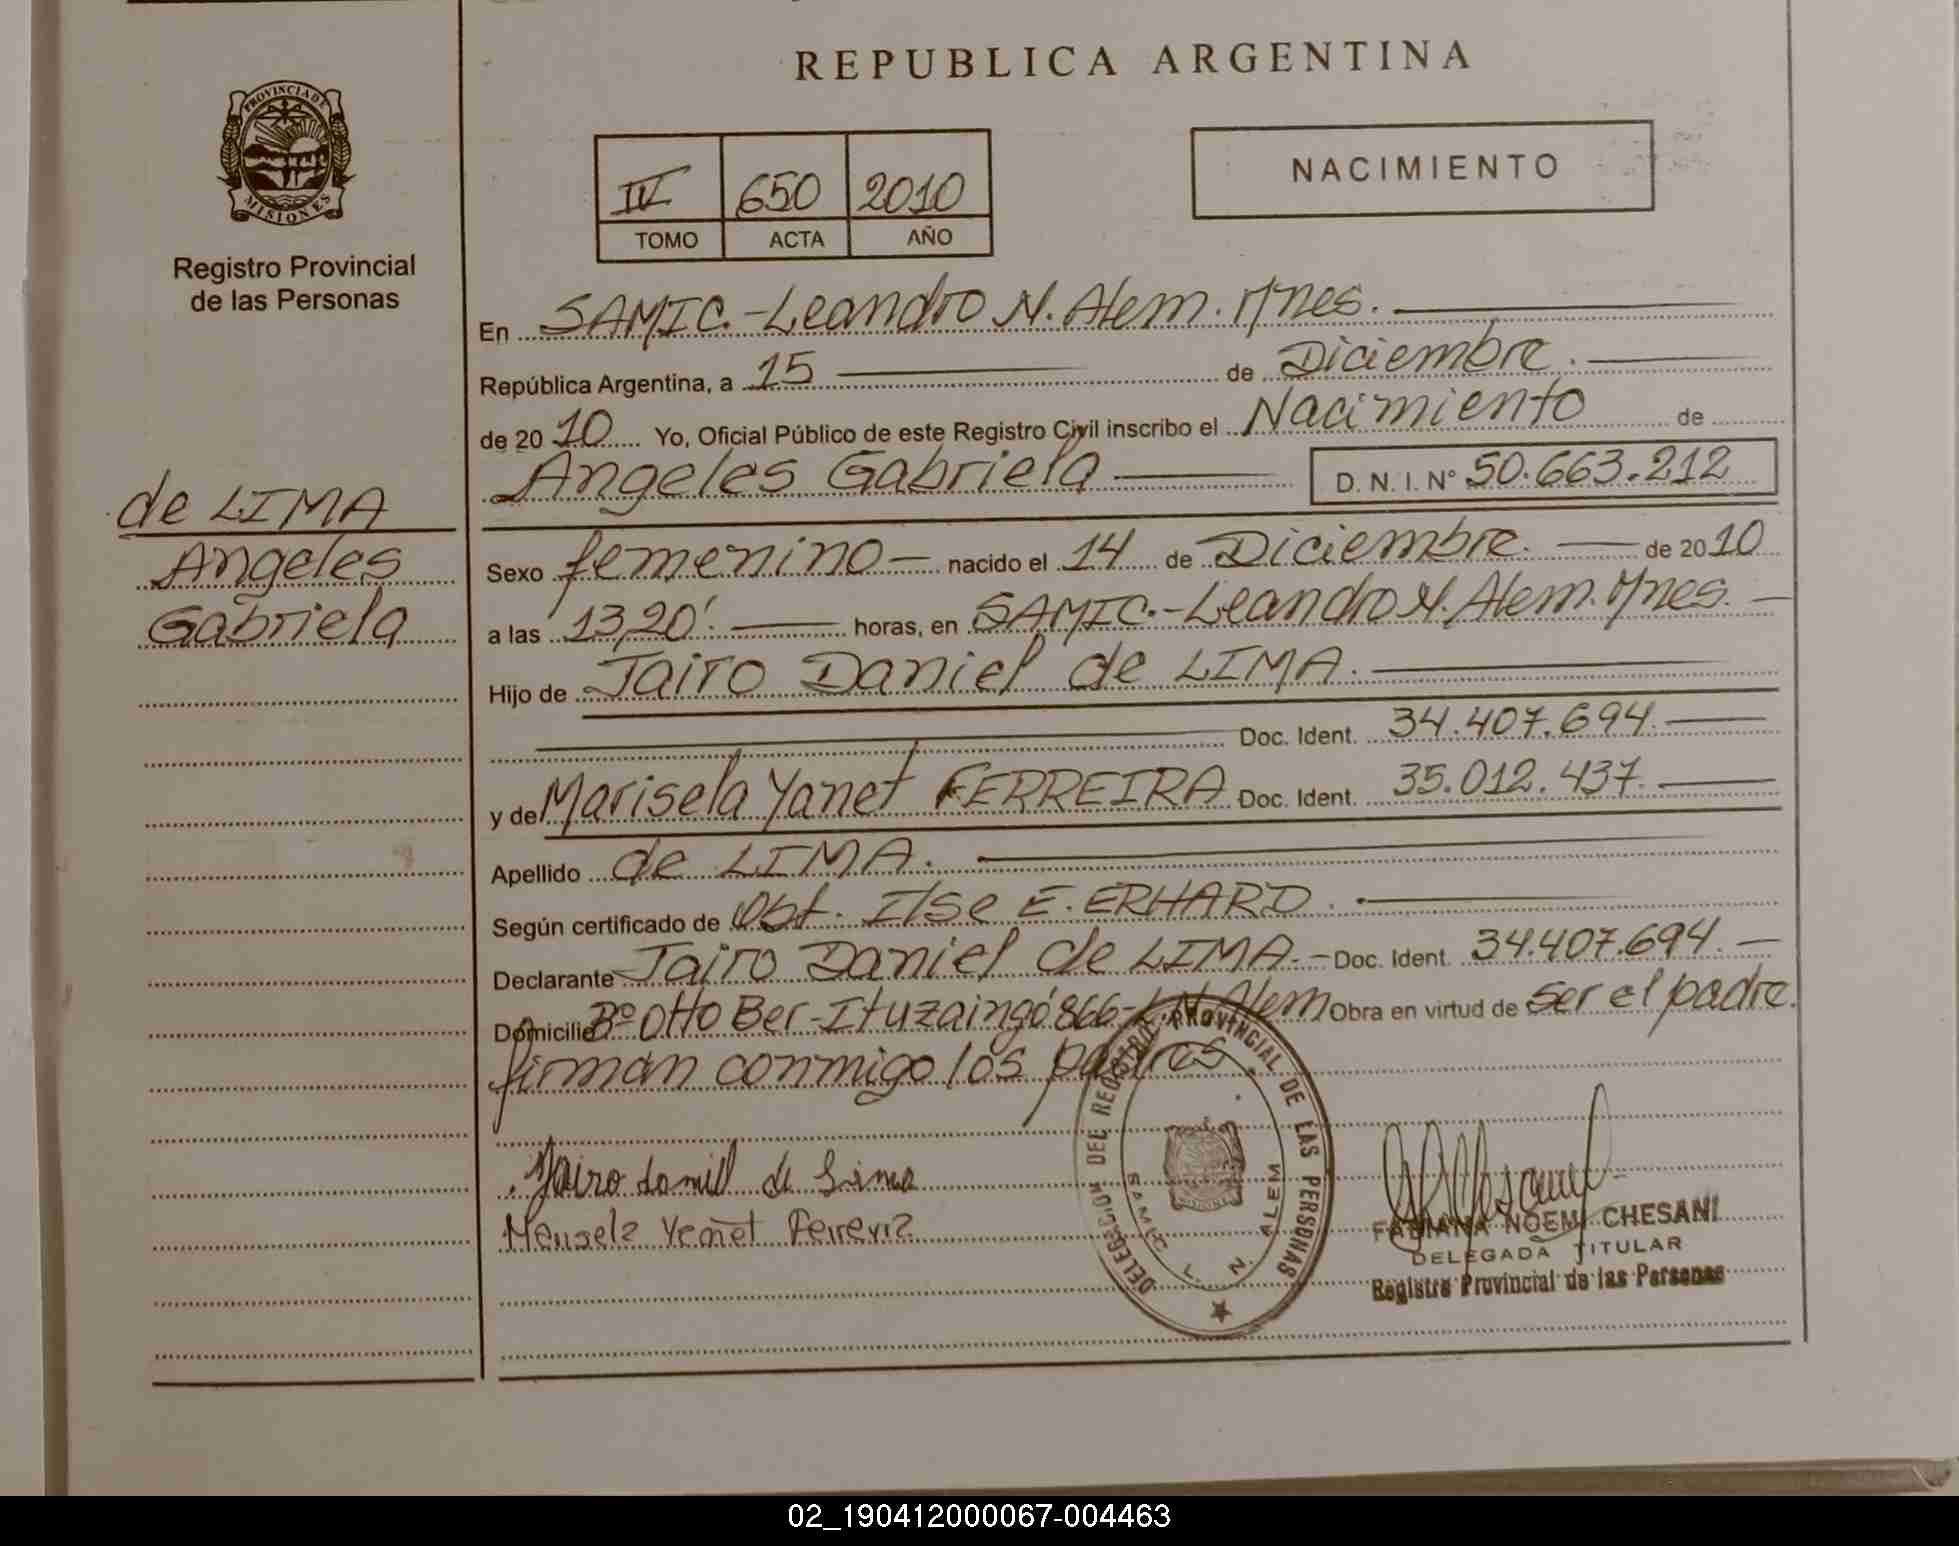 REPUBLICA ARGENTINA
PROVINCIA DE MISIONES
Registro Provincial
de las Personas
IV 650 2010
TOMO ACTA AÑO
NACIMIENTO
En SAMIC.-Leandro N. Alem. Mnes.
República Argentina, a 15 de Diciembre.
de 2010 Yo, Oficial Público de este Registro Civil inscribo el Nacimiento de
Angeles Gabriela D.N.I. Nº 50.663.212
de LIMA
Angeles
Gabriela
Sexo femenino nacido el 14 de Diciembre. de 2010
a las 13,20'. horas, en SAMIC.-Leandro N. Alem. Mnes.
Hijo de Jairo Daniel de LIMA.
Doc. Ident. 34.407.694.
y de Marisela Yanet FERREIRA Doc. Ident. 35.012.437.
Apellido de LIMA.
Según certificado de Obt. Ilse E. ERHARD.
Declarante Jairo Daniel de LIMA.- Doc. Ident. 34.407.694.
Domicilio Bº Otto Ber-Ituzaingó 866-L.N. Alem Obra en virtud de ser el padre.
firman conmigo los padres.
Jairo Daniel de Lima
Marisela Yanet Ferreira
DELEGACION DEL REGISTRO PROVINCIAL DE LAS PERSONAS
SAMIC L. N. ALEM
MISIONES
FABIANA NOEMI CHESANI
DELEGADA TITULAR
Registro Provincial de las Personas
02_190412000067-004463